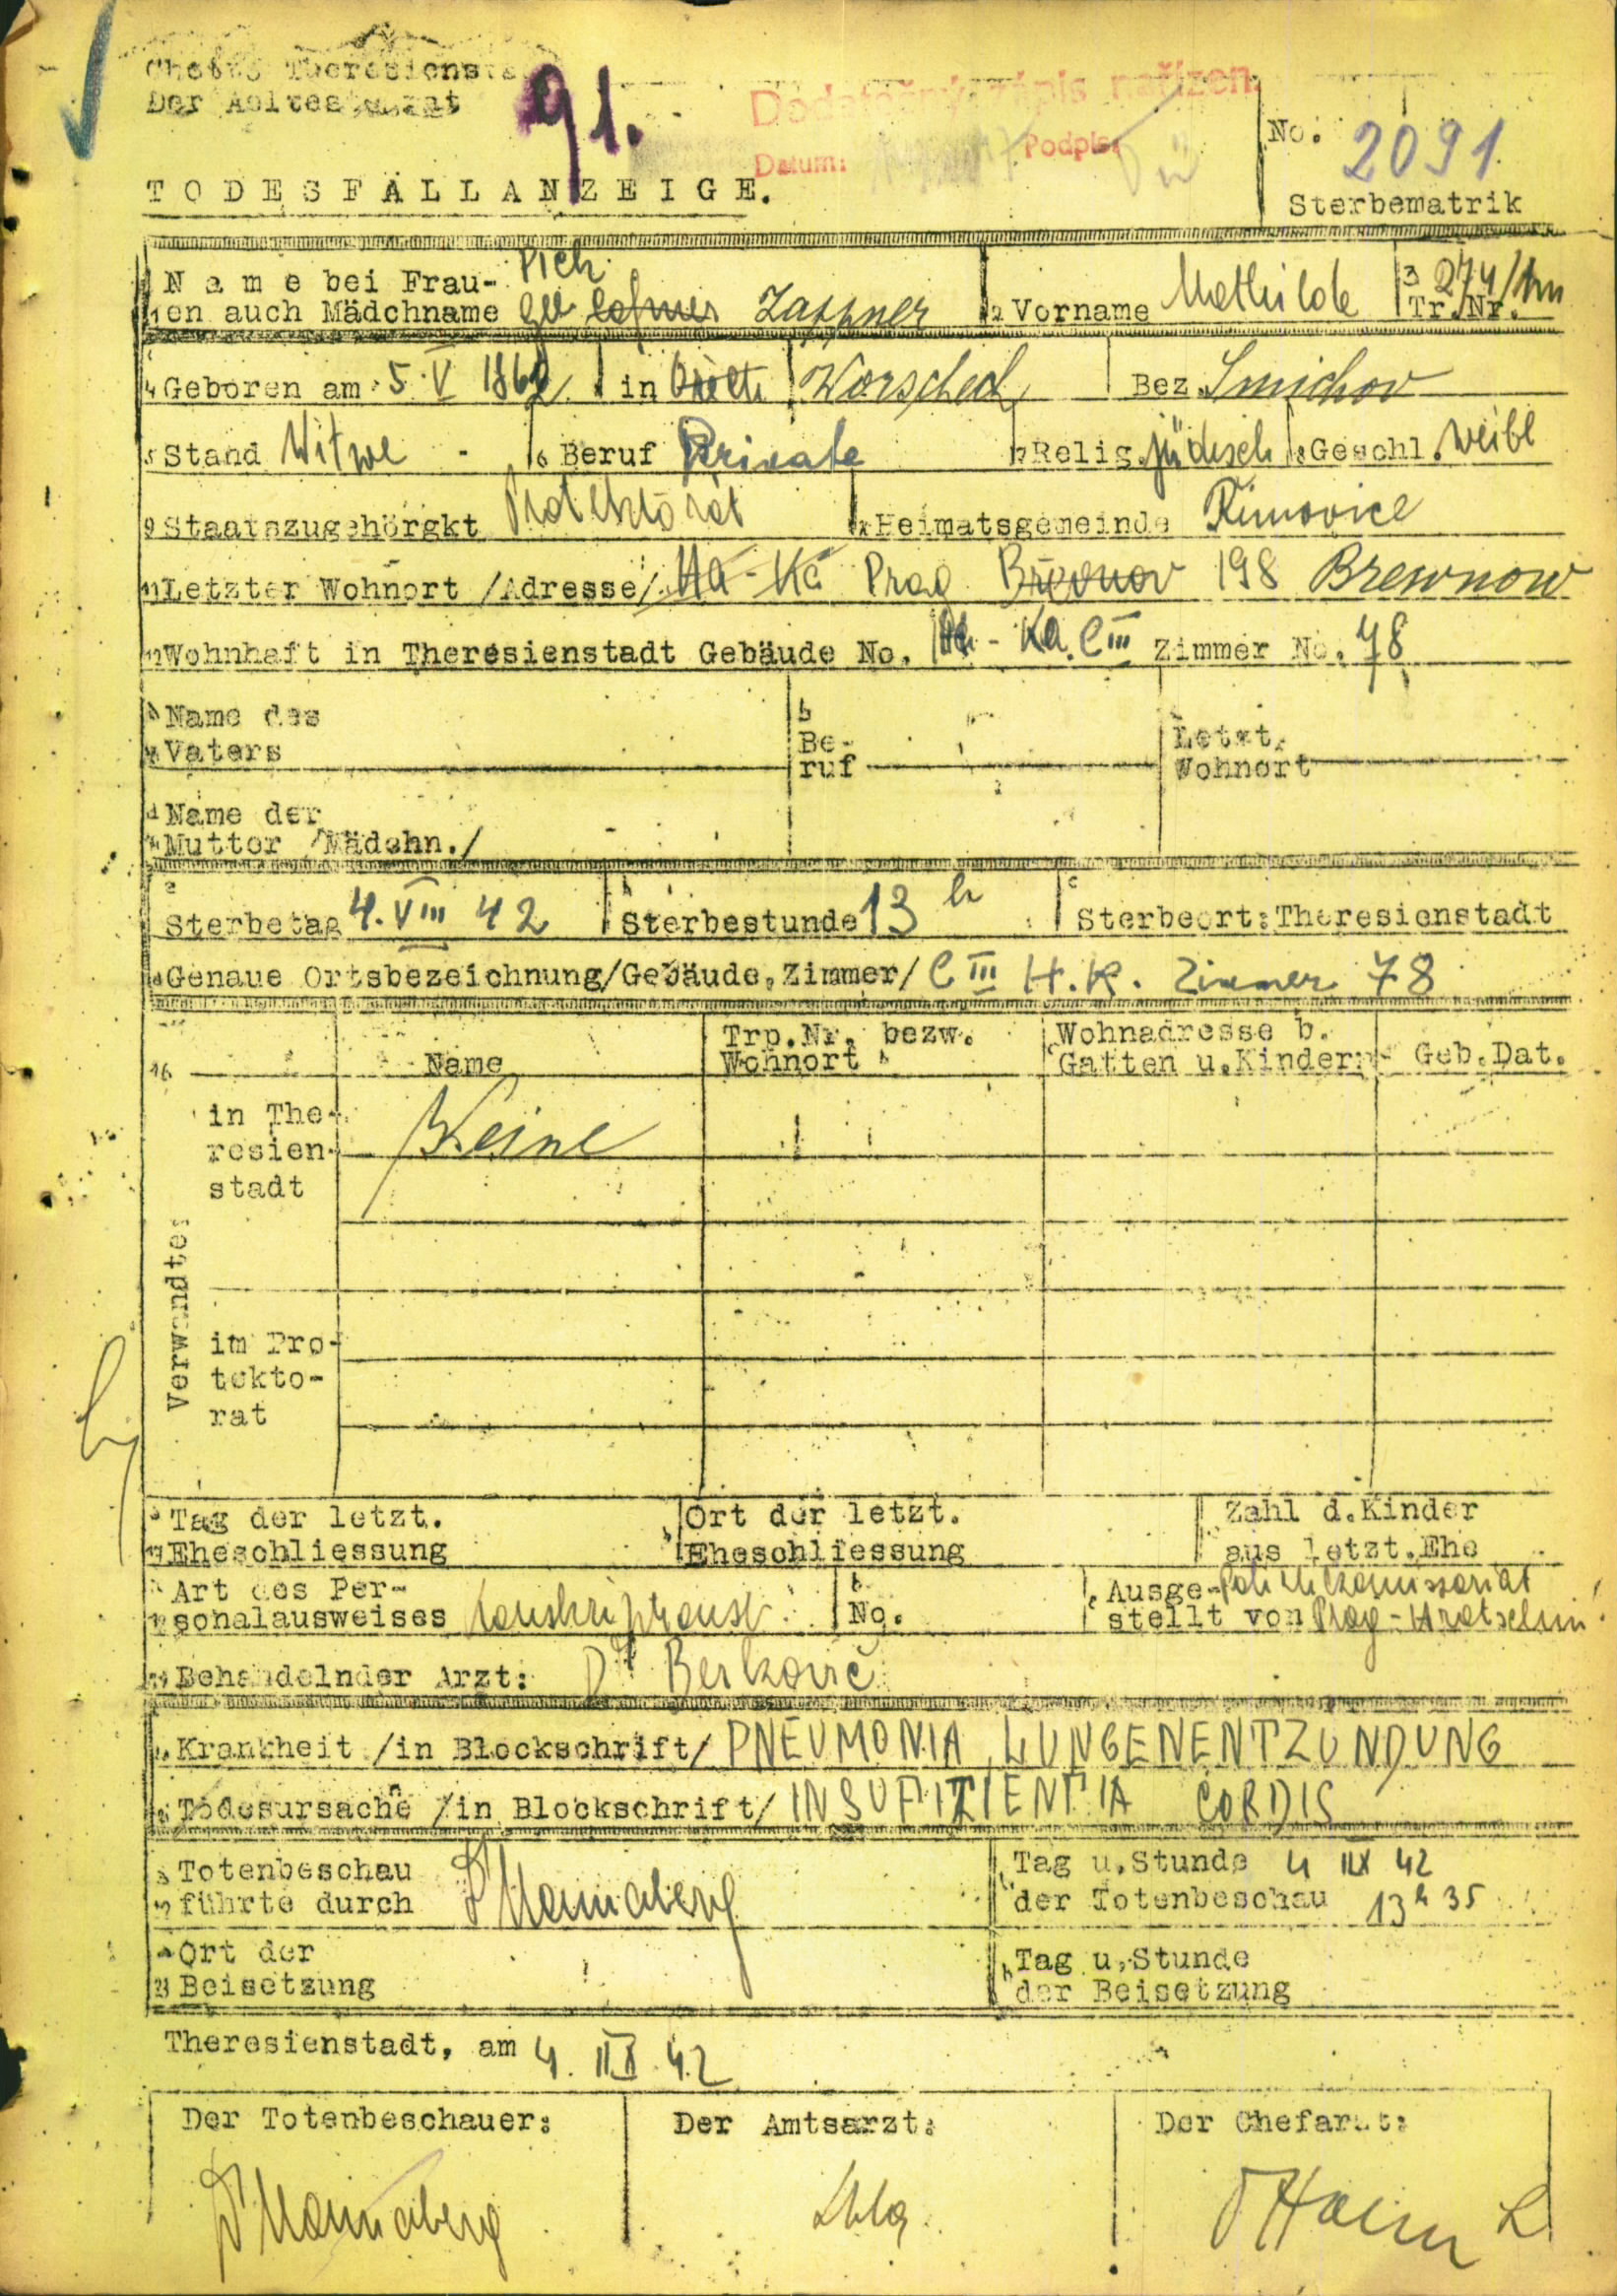 Ghetto Theresienstadt
Der Aeltestenrat
91.
Dodatečný zápis nařízen
Datum: Podpis:
No. 2091
Sterbematrik
TODESFALLANZEIGE.
Pick
Name bei Frau-
en auch Mädchname geb Zappner Vorname Mathilde Tr.Nr. 274/
Geboren am 5 V 1862 in Worschech Bez. Smichov
Stand Witwe Beruf Private Relig. jüdisch Geschl. weibl
Staatszugehörgkt Protektorat Heimatsgemeinde
Letzter Wohnort /Adresse/ Prag Břevnov 198 Brewnow
Wohnhaft in Theresienstadt Gebäude No. C III Zimmer No. 78
Name des
Vaters
Be-
ruf
Letzt.
Wohnort
Name der
Mutter /Mädchn./
Sterbetag 4. VIII 42 Sterbestunde 13 h Sterbeort: Theresienstadt
Genaue Ortsbezeichnung/Gebäude, Zimmer/ C III H.K. Zimmer 78
16 Name
Trp.Nr. bezw.
Wohnort
Wohnadresse b.
Gatten u.Kindern
Geb.Dat.
Verwandte:
in The-
resien-
stadt
Keine
im Pro-
tekto-
rat
Tag der letzt.
Eheschliessung
Ort der letzt.
Eheschliessung
Zahl d.Kinder
aus letzt.Ehe
Art des Per-
sonalausweises
No.
Ausge-
stellt von Prag-
Behandelnder Arzt: Dr
Krankheit /in Blockschrift/ PNEUMONIA, LUNGENENTZÜNDUNG
Todesursache /in Blockschrift/ INSUFITIENTIA CORDIS
Totenbeschau
führte durch
Tag u.Stunde 4 IIX 42
der Totenbeschau 13 h 35
Ort der
Beisetzung
Tag u.Stunde
der Beisetzung
Theresienstadt, am 4. IIX 42
Der Totenbeschauer:
Der Amtsarzt:
Der Chefarzt: